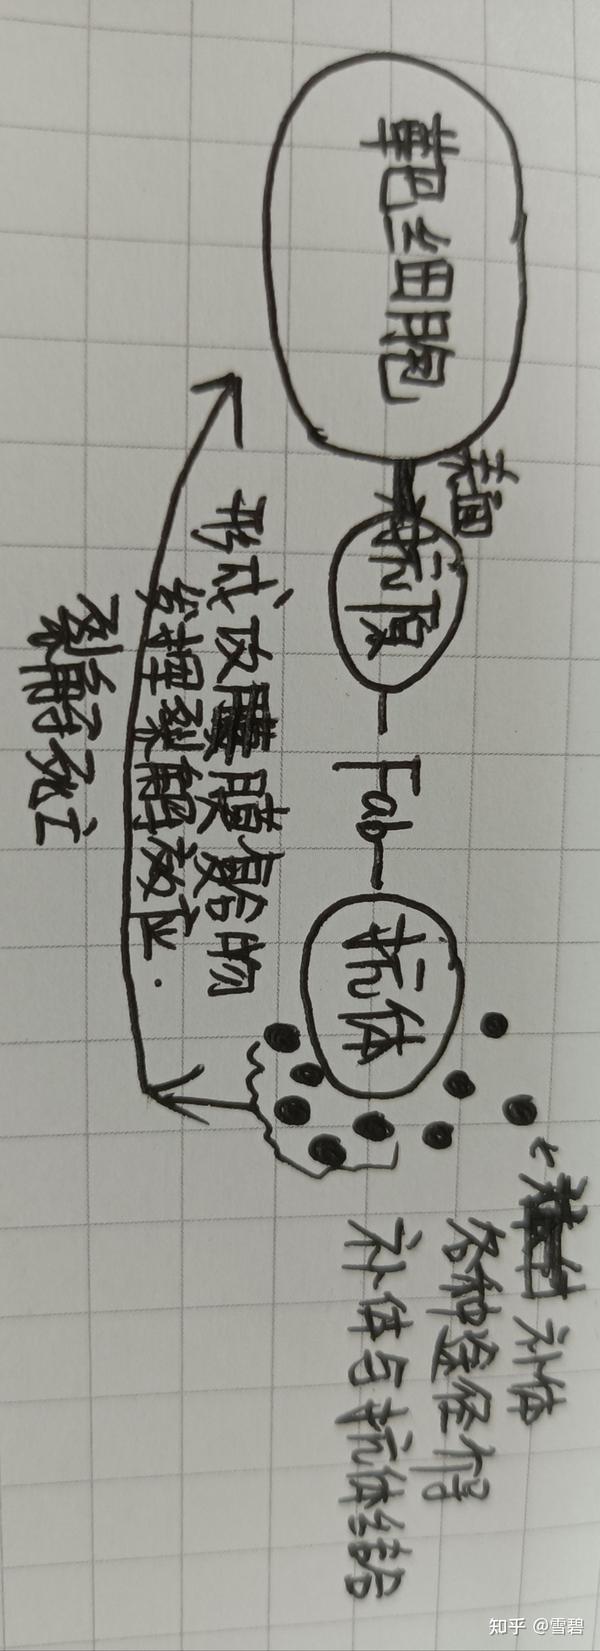 靶细胞
表面
抗原
Fab
抗体
补体
各种途径使得
补体与抗体结合
形成攻膜复合物
发挥裂解效应.
裂解死亡
知乎 @雪碧